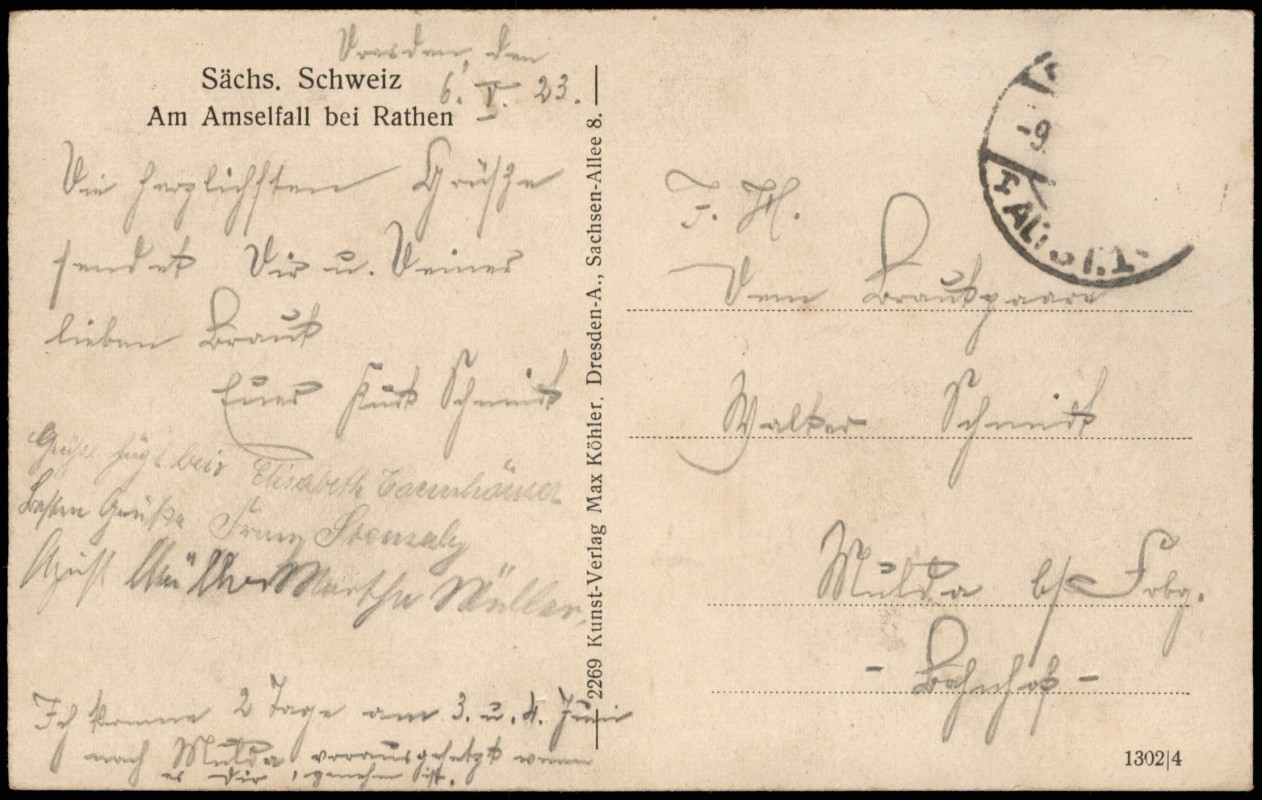 Dresden, den
6. V. 23.
Sächs. Schweiz
Am Amselfall bei Rathen
Die herzlichsten Grüße
sendet Dir u. Deiner
lieben Braut
Euer Kurt Schmidt
Elisabeth
Besten Grüße Franz
Müller Martha Müller,
Ich komme 2 Tage am 3. u. 4. Juni
nach Mulda vorausgesetzt wenn
es Dir genehm ist.
2269 Kunst-Verlag Max Köhler, Dresden-A., Sachsen-Allee 8.
-9
F. H.
Dem Brautpaare
Walter Schmidt
Mulda b/ Frbg.
- Bahnhof -
1302|4